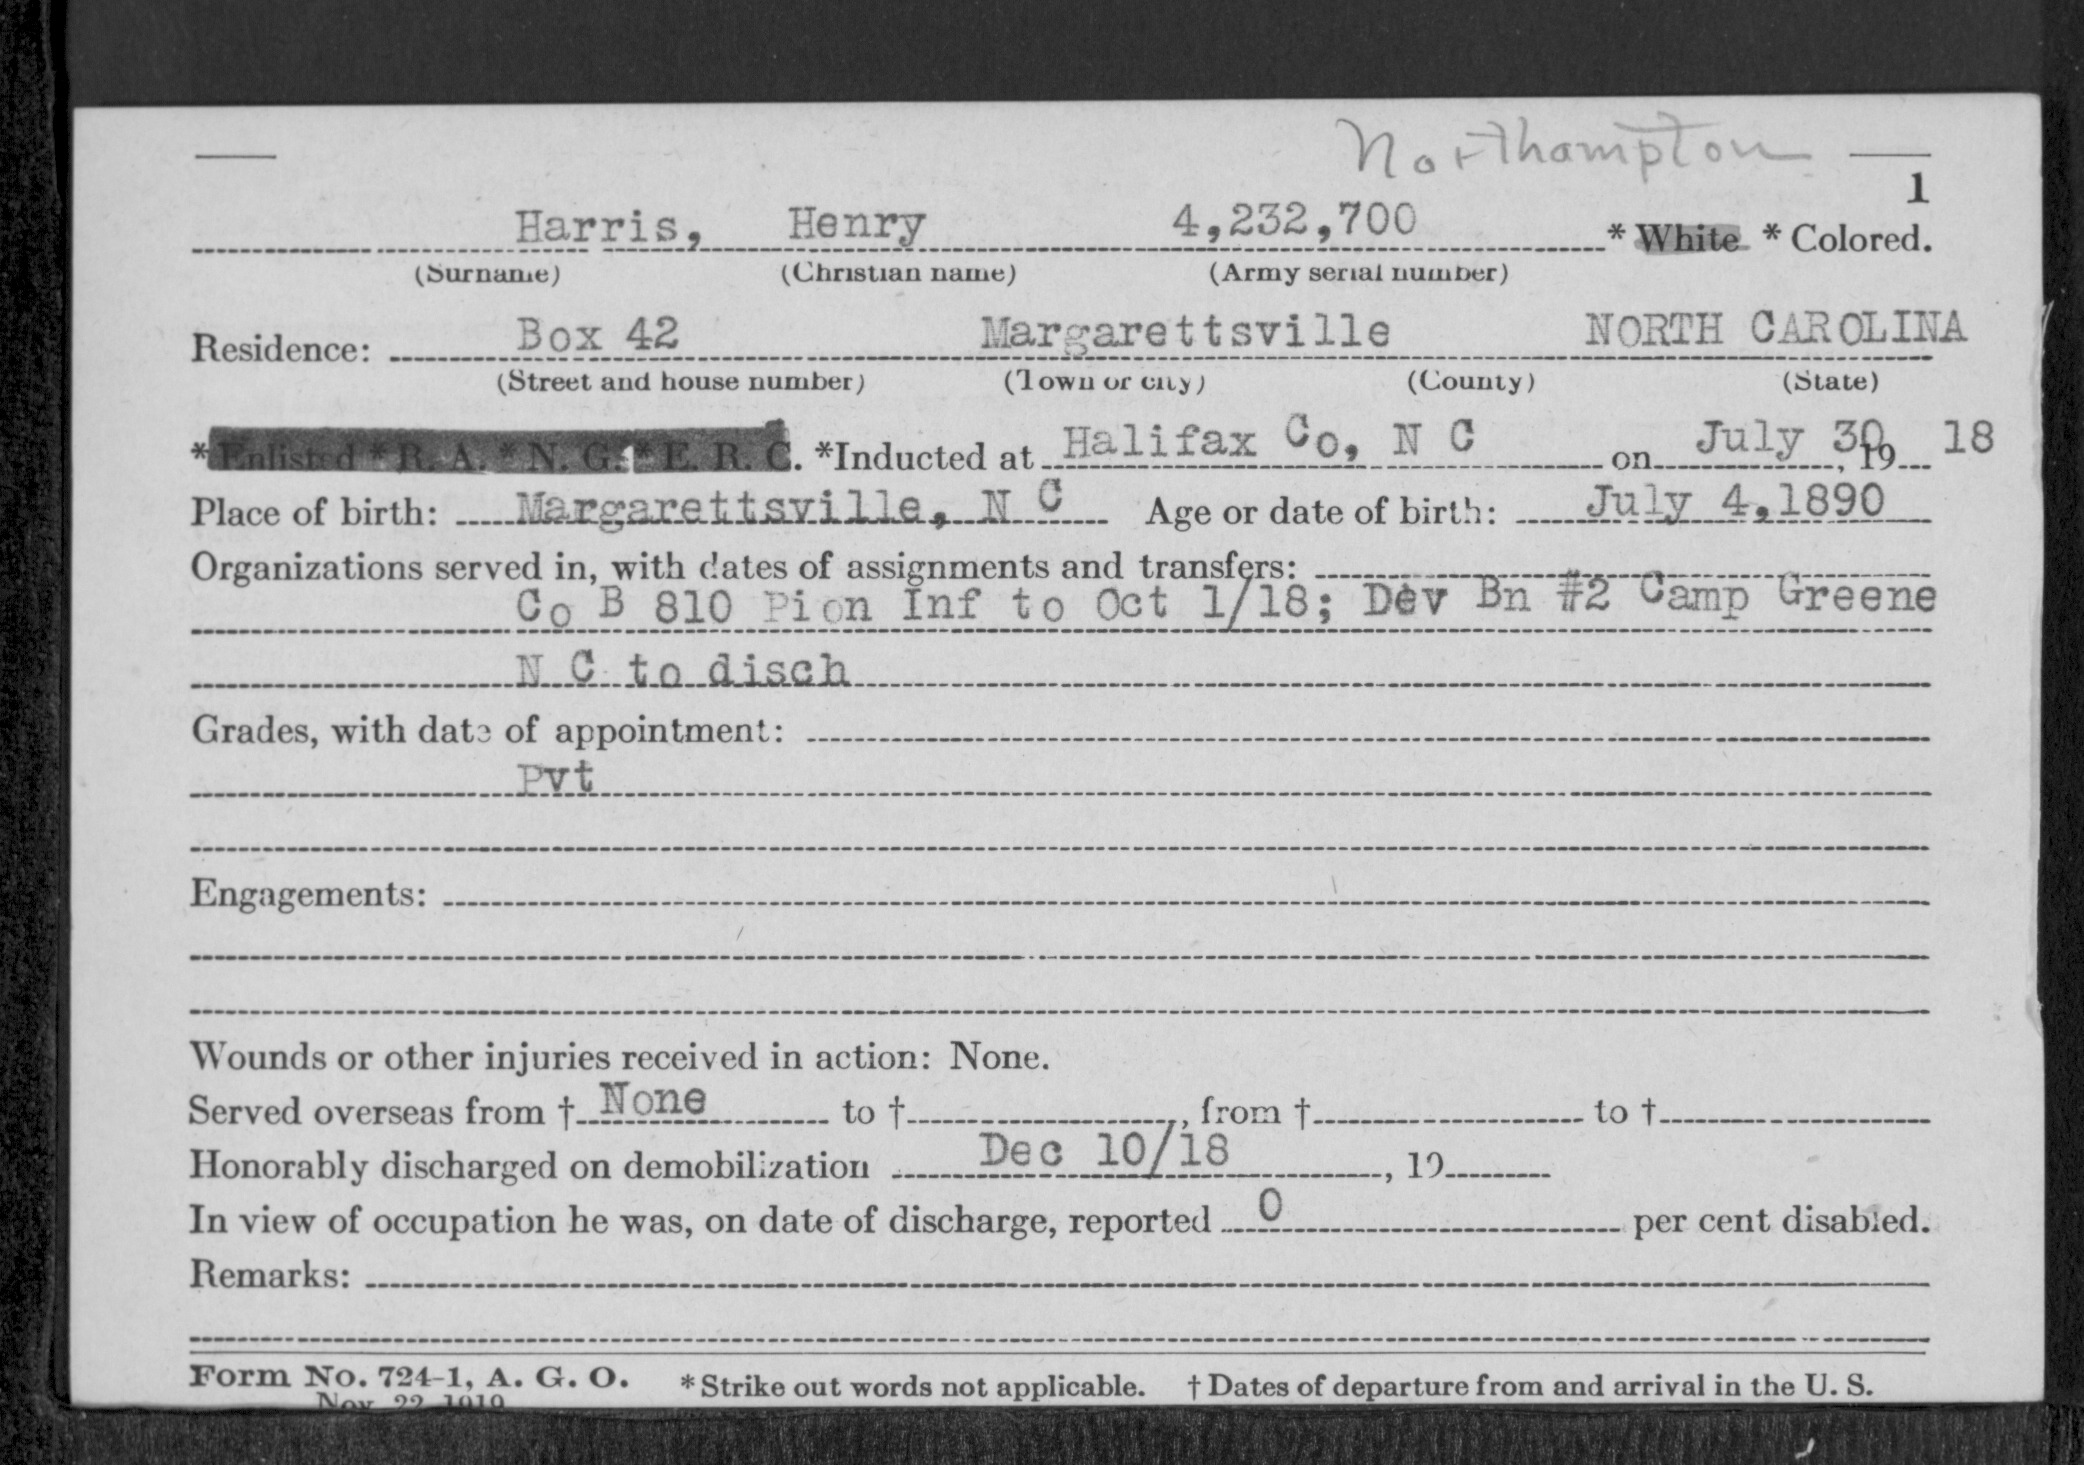 Northampton
1
Harris, Henry 4,232,700 * White * Colored.
(Surname) (Christian name) (Army serial number)
Residence: Box 42 Margarettsville NORTH CAROLINA
(Street and house number) (Town or city) (County) (State)
*Enlisted * R. A. * N. G. * E. R. C. *Inducted at Halifax Co, N C on July 30, 19 18
Place of birth: Margarettsville, N C Age or date of birth: July 4,1890
Organizations served in, with dates of assignments and transfers:
Co B 810 Pion Inf to Oct 1/18; Dev Bn #2 Camp Greene
N C to disch
Grades, with date of appointment:
Pvt
Engagements:
Wounds or other injuries received in action: None.
Served overseas from † None to †, from † to †
Honorably discharged on demobilization Dec 10/18, 19
In view of occupation he was, on date of discharge, reported 0 per cent disabled.
Remarks:
Form No. 724-1, A. G. O. *Strike out words not applicable. † Dates of departure from and arrival in the U. S.
Nov. 22, 1919